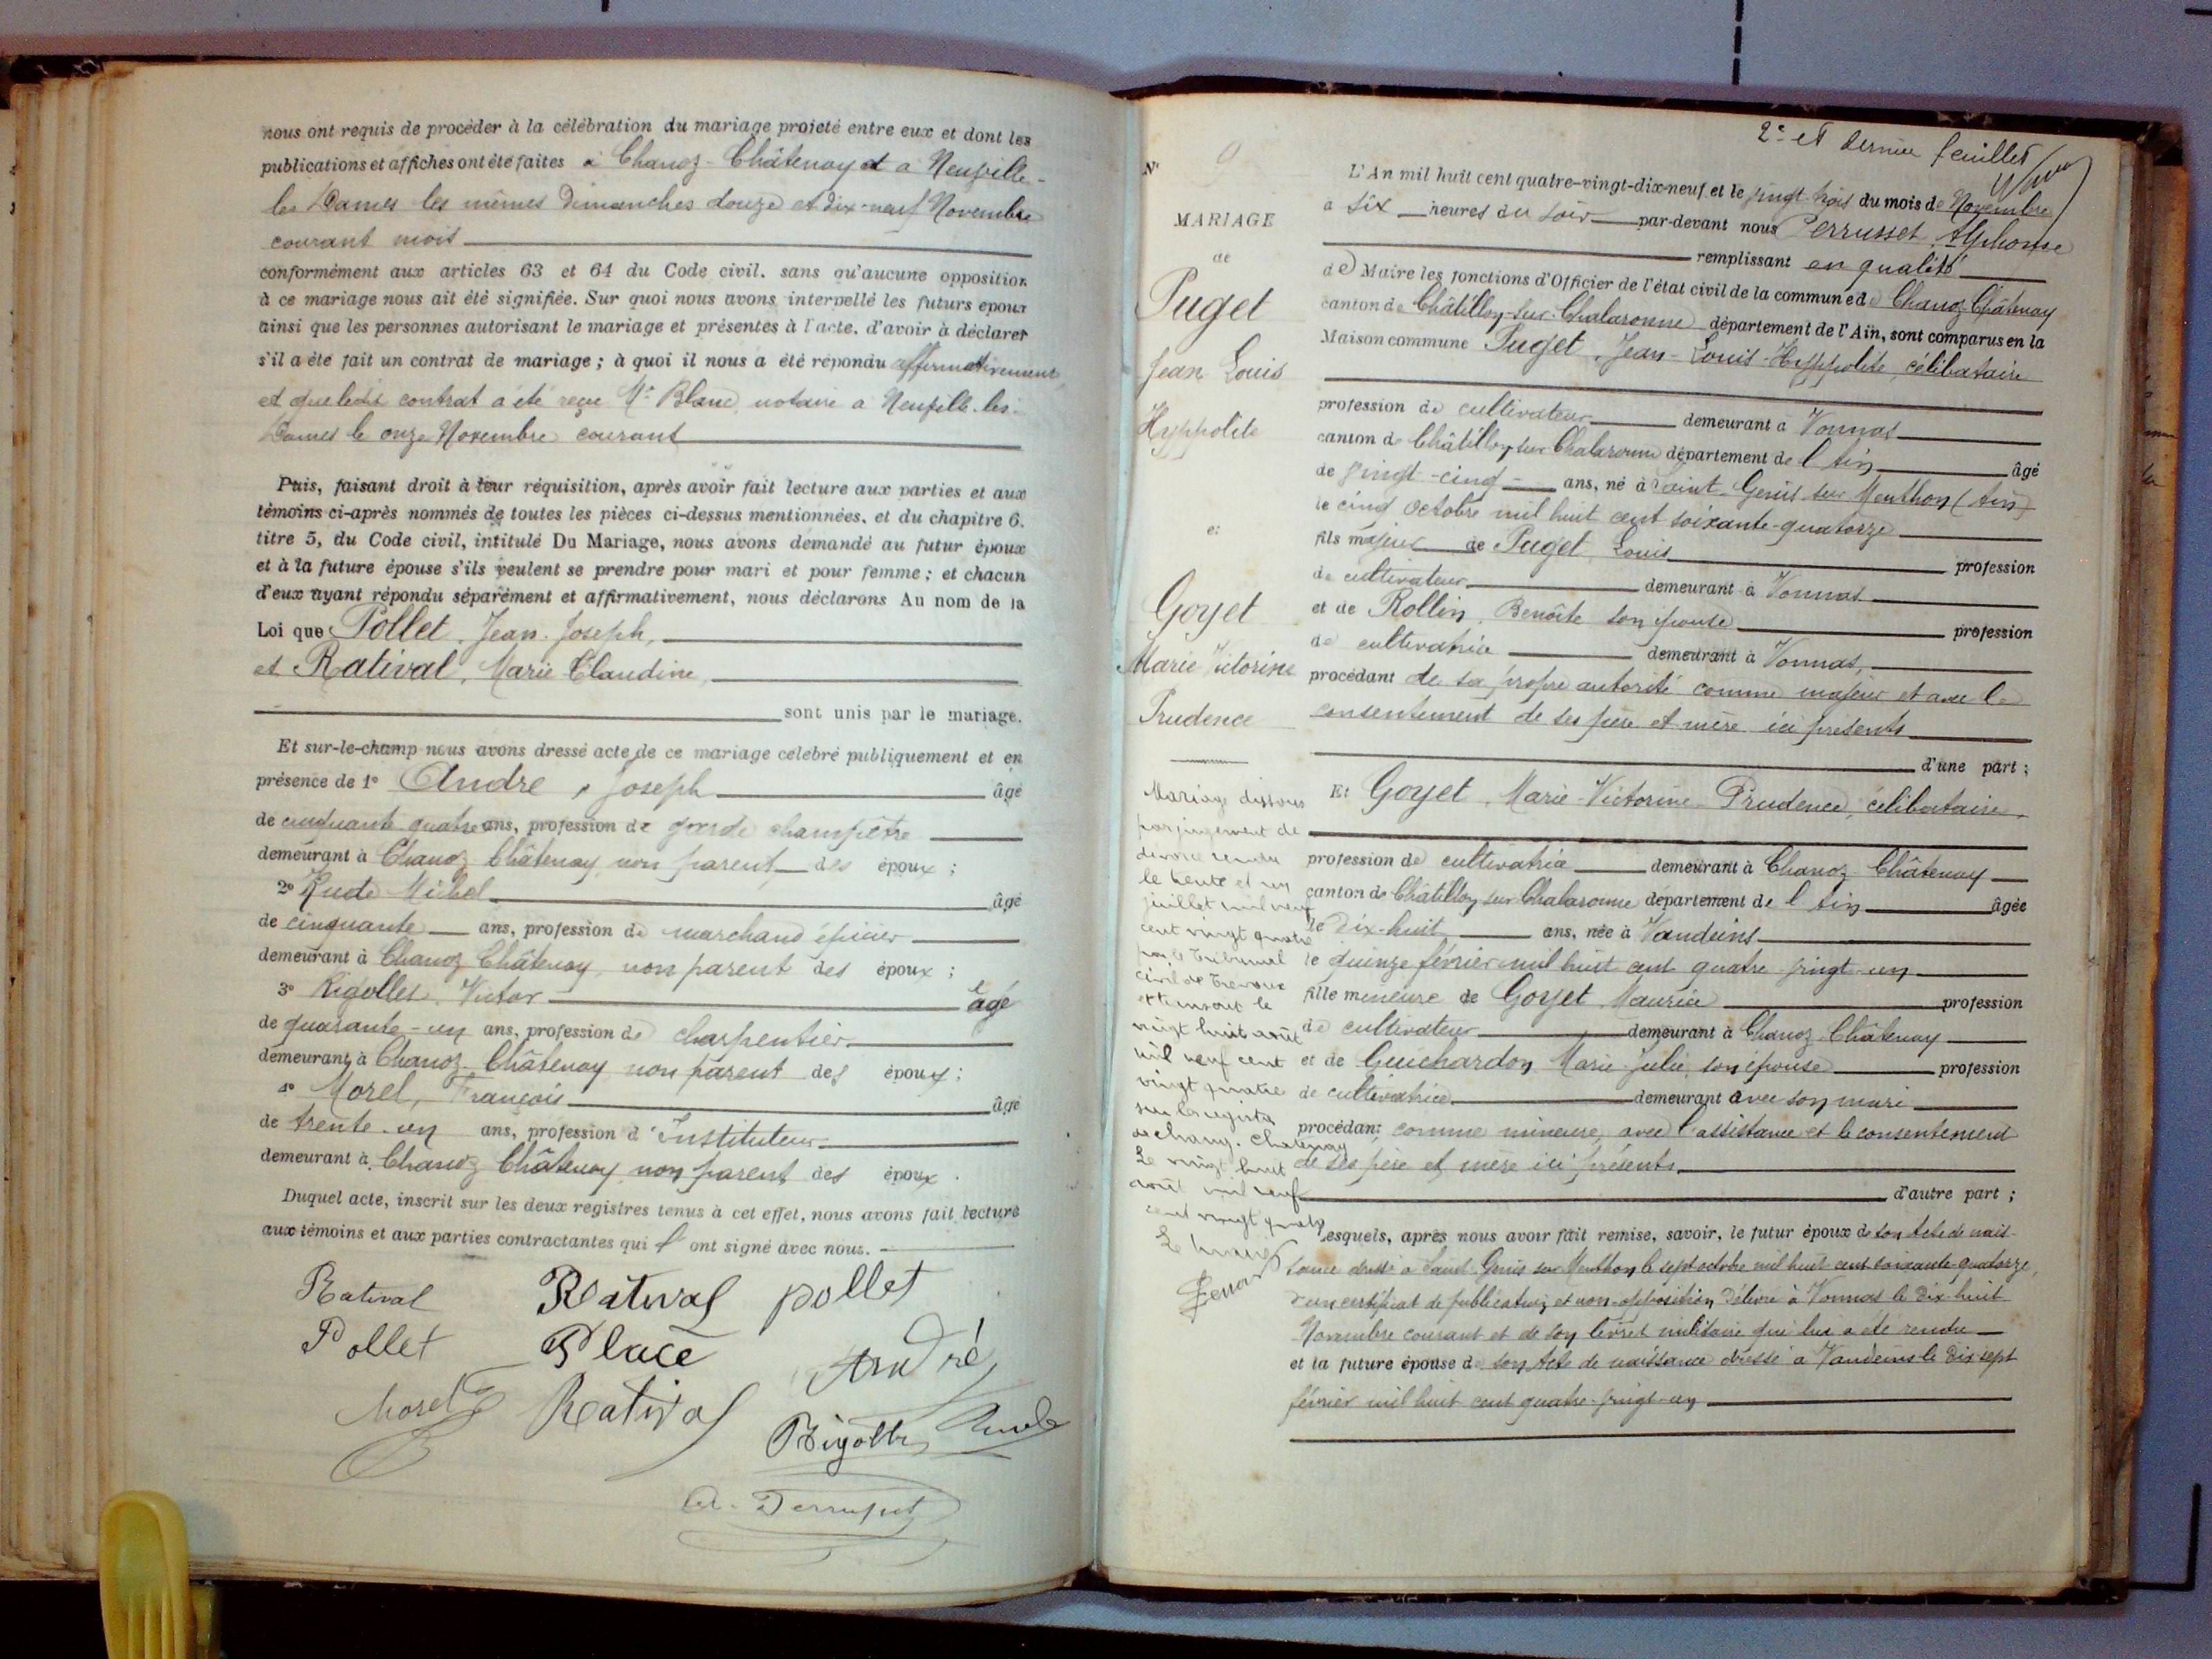 nous ont requis de procéder à la célébration du mariage projeté entre eux et dont les
publications et affiches ont été faites à Chanoz-Châtenay et à Neuville-
les Dames les mêmes Dimanches douze et dix-neuf Novembre
courant mois
conformément aux articles 63 et 64 du Code civil. sans qu'aucune opposition
à ce mariage nous ait été signifiée. Sur quoi nous avons interpellé les futurs époux
ainsi que les personnes autorisant le mariage et présentes à l'acte, d'avoir à déclarer
s'il a été fait un contrat de mariage ; à quoi il nous a été répondu affirmativement
et que ledit contrat a été reçu Me Blanc, notaire à Neuville-les-
Dames le onze Novembre courant
Puis, faisant droit à leur réquisition, après avoir fait lecture aux parties et aux
témoins ci-après nommés de toutes les pièces ci-dessus mentionnées, et du chapitre 6.
titre 5, du Code civil, intitulé Du Mariage, nous avons demandé au futur époux
et à la future épouse s'ils veulent se prendre pour mari et pour femme ; et chacun
d'eux ayant répondu séparément et affirmativement, nous déclarons Au nom de la
Loi que Pollet, Jean-Joseph,
et Ratival, Marie Claudine,
sont unis par le mariage.
Et sur-le-champ nous avons dressé acte de ce mariage célébré publiquement et en
présence de 1° André, Joseph âgé
de cinquante-quatre ans, profession de garde champêtre
demeurant à Chanoz-Châtenay, non parent des époux ;
2° Rude Michel âgé
de cinquante ans, profession de marchand épicier
demeurant à Chanoz-Châtenay, non parent des époux ;
3° Rigollet, Victor âgé
de quarante-un ans, profession de charpentier
demeurant à Chanoz-Châtenay non parent des époux ;
4° Morel, François âgé
de trente-un ans, profession d'Instituteur
demeurant à Chanoz Châtenay, non parent des époux.
Duquel acte, inscrit sur les deux registres tenus à cet effet, nous avons fait lecture
aux témoins et aux parties contractantes qui l'ont signé avec nous.
Ratival Ratival pollet
Pollet Place André
Morel Ratival Rigollet Rude
A. Perrusset
2e et dernier feuillet
N° 9
MARIAGE
de
Puget
Jean Louis
Hyppolite
et
Goyet
Marie Victorine
Prudence
Mariage dissous
par jugement de
divorce rendu
le trente et un
juillet mil neuf
cent vingt quatre
par le Tribunal
civil de Trévoux
et transcrit le
vingt huit août
mil neuf cent
vingt quatre
sur les registres
de Chanoz-Chatenay
Le vingt huit
août mil neuf
cent vingt quatre
Le maire
L'An mil huit cent quatre-vingt-dix-neuf et le vingt-trois du mois de Novembre
à six heures du soir par-devant nous Perrusset, Alphonse
remplissant en qualité
de Maire les fonctions d'Officier de l'état civil de la commune de Chanoz-Châtenay
canton de Châtillon-sur-Chalaronne département de l'Ain, sont comparus en la
Maison commune Puget, Jean-Louis-Hyppolite, célibataire
profession de cultivateur demeurant à Vonnas
canton de Châtillon-sur-Chalaronne département de l'Ain âgé
de vingt-cinq ans, né à Saint-Genis sur Menthon (Ain)
le cinq octobre mil huit cent soixante-quatorze
fils majeur de Puget Louis profession
de cultivateur demeurant à Vonnas
et de Rollin, Benoîte son épouse profession
de cultivatrice demeurant à Vonnas,
procédant de sa propre autorité comme majeur et avec le
consentement de ses père et mère ici présents
d'une part ;
Et Goyet, Marie-Victorine-Prudence, célibataire,
profession de cultivatrice demeurant à Chanoz-Châtenay
canton de Châtillon sur Chalaronne département de l'Ain âgée
de Dix-huit ans, née à Vandeins
le quinze février mil huit cent quatre-vingt-un
fille mineure de Goyet Maurice profession
de cultivateur demeurant à Chanoz-Châtenay
et de Guichardon Marie Julie, son épouse profession
de cultivatrice demeurant avec son mari
procédant comme mineure, avec l'assistance et le consentement
de ses père et mère ici présents
d'autre part ;
Lesquels, après nous avoir fait remise, savoir, le futur époux de son Acte de nais-
sance dressé à Saint-Genis sur Menthon le sept octobre mil huit cent soixante-quatorze,
d'un certificat de publication et non-opposition délivré à Vonnas le dix-huit
Novembre courant et de son livret militaire qui lui a été rendu
et la future épouse de son Acte de naissance dressé à Vandeins le Dix-sept
février mil huit cent quatre-vingt-un